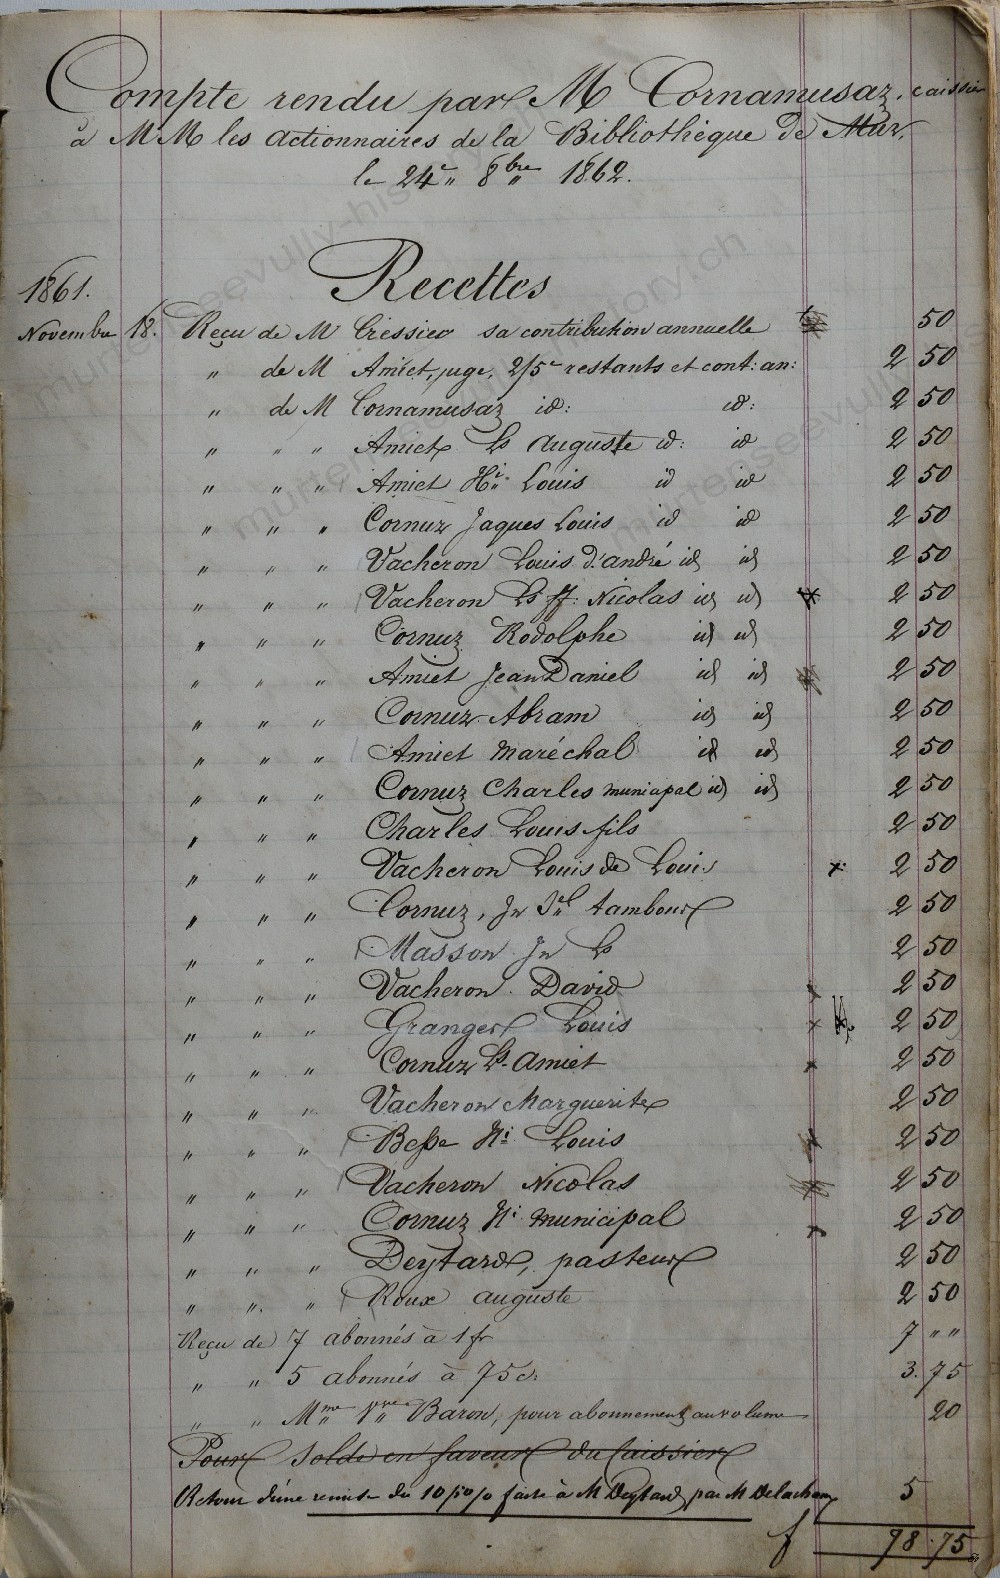 Compte rendu par M Cornamusaz, caissier
à M M les actionnaires de la Bibliothèque de Mur,
le 24e „ 8bre „ 1862.
Recettes
1861.
Novembre 18. Reçu de M Cressier sa contribution annuelle 50
„ de M Amiet, juge, 2/5e restants et cont: an: 2 50
„ de M Cornamusaz id: id: 2 50
„ „ „ Amiet Ls Auguste id: id 2 50
„ „ „ Amiet Hi Louis id id 2 50
„ „ „ Cornuz Jaques Louis id id 2 50
„ „ „ Vacheron Louis d'andré id id 2 50
„ „ „ Vacheron Ls ff: Nicolas id id 2 50
„ „ „ Cornuz Rodolphe id id 2 50
„ „ „ Amiet Jean Daniel id id 2 50
„ „ „ Cornuz Abram id id 2 50
„ „ „ Amiet maréchal id id 2 50
„ „ „ Cornuz Charles municipal id id 2 50
„ „ „ Charles Louis fils 2 50
„ „ „ Vacheron Louis de Louis 2 50
„ „ „ Cornuz, Jn Del tambour 2 50
„ „ „ Masson Jn Ls 2 50
„ „ „ Vacheron David 2 50
„ „ „ Granger Louis 2 50
„ „ „ Cornuz Ls Amiet 2 50
„ „ „ Vacheron Marguerite 2 50
„ „ „ Besse Hi Louis 2 50
„ „ „ Vacheron Nicolas 2 50
„ „ „ Cornuz Hi municipal 2 50
„ „ „ Deytard, pasteur 2 50
„ „ „ Roux auguste 2 50
Reçu de 7 abonnés à 1 fr 7 „ „
„ „ 5 abonnés à 75 c. 3.75
„ „ Mme Vve Baron, pour abonnement au volume 20
Pour solde en faveur du Caissier
Retour d'une remise du 10 p% faite à M Deytard par M Delachaux 5
f 78.75
murtenseevully-history.ch